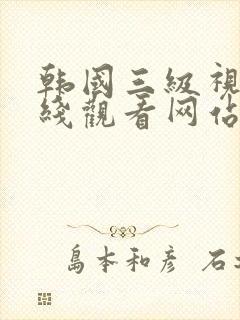 韩國三級視
綫觀看网佔
島本和彦 石